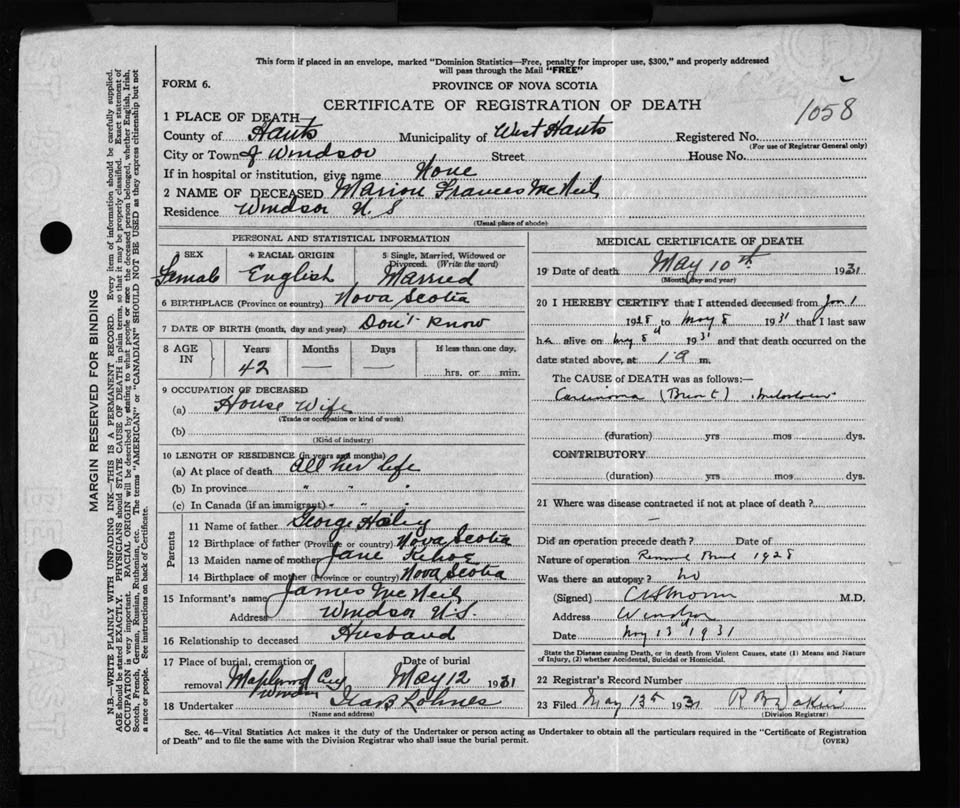 This form if placed in an envelope, marked "Dominion Statistics—Free, penalty for improper use, $300," and properly addressed
will pass through the Mail "FREE"
FORM 6.
PROVINCE OF NOVA SCOTIA
1058
CERTIFICATE OF REGISTRATION OF DEATH
1 PLACE OF DEATH—
County of Hants Municipality of West Hants Registered No.
(For use of Registrar General only)
City or Town of Windsor Street House No.
If in hospital or institution, give name None
2 NAME OF DECEASED Marion Frances McNeil
Residence Windsor N.S
(Usual place of abode)
PERSONAL AND STATISTICAL INFORMATION
SEX 4 RACIAL ORIGIN 5 Single, Married, Widowed or
Divorced. (Write the word)
Female English Married
6 BIRTHPLACE (Province or country) Nova Scotia
7 DATE OF BIRTH (month, day and year) Don't Know
8 AGE IN Years Months Days If less than one day,
42 — — hrs. or min.
9 OCCUPATION OF DECEASED
(a) House Wife
(Trade or occupation or kind of work)
(b)
(Kind of industry)
10 LENGTH OF RESIDENCE (in years and months)
(a) At place of death all her life
(b) In province " " "
(c) In Canada (if an immigrant) " " "
Parents
11 Name of father George Haley
12 Birthplace of father (Province or country) Nova Scotia
13 Maiden name of mother Jane
14 Birthplace of mother (Province or country) Nova Scotia
15 Informant's name James McNeil
Address Windsor N.S.
16 Relationship to deceased Husband
17 Place of burial, cremation or Date of burial
removal Maplewood Windsor May 12 1931
18 Undertaker Lohnes
(Name and address)
MEDICAL CERTIFICATE OF DEATH
19 Date of death May 10th 1931
(Month, day and year)
20 I HEREBY CERTIFY that I attended deceased from Jan 1
1928 to May 8 1931 that I last saw
h alive on May 8 1931 and that death occurred on the
date stated above, at 1 a m.
The CAUSE of DEATH was as follows:—
Carcinoma (Breast)
(duration) yrs mos dys.
CONTRIBUTORY
(duration) yrs mos dys.
21 Where was disease contracted if not at place of death?
—
Did an operation precede death? Date of
Nature of operation Removal Breast 1928
Was there an autopsy? no
(Signed) M.D.
Address Windsor
Date May 13 1931
State the Disease causing Death, or in death from Violent Causes, state (1) Means and Nature
of Injury, (2) whether Accidental, Suicidal or Homicidal.
22 Registrar's Record Number
23 Filed May 13th 1931
(Division Registrar)
Sec. 46—Vital Statistics Act makes it the duty of the Undertaker or person acting as Undertaker to obtain all the particulars required in the "Certificate of Registration
of Death" and to file the same with the Division Registrar who shall issue the burial permit.
(OVER)
MARGIN RESERVED FOR BINDING
N.B.—WRITE PLAINLY WITH UNFADING INK—THIS IS A PERMANENT RECORD. Every item of information should be carefully supplied.
AGE should be stated EXACTLY. PHYSICIANS should STATE CAUSE OF DEATH in plain terms, so that it may be properly classified. Exact statement of
OCCUPATION is very important. RACIAL ORIGIN will be described by stating to what people or race the deceased person belonged, whether English, Irish,
Scotch, French, German, Russian, Ruthenian, etc. The terms "AMERICAN" or "CANADIAN" SHOULD NOT BE USED as they express citizenship but not
a race or people. See instructions on back of Certificate.